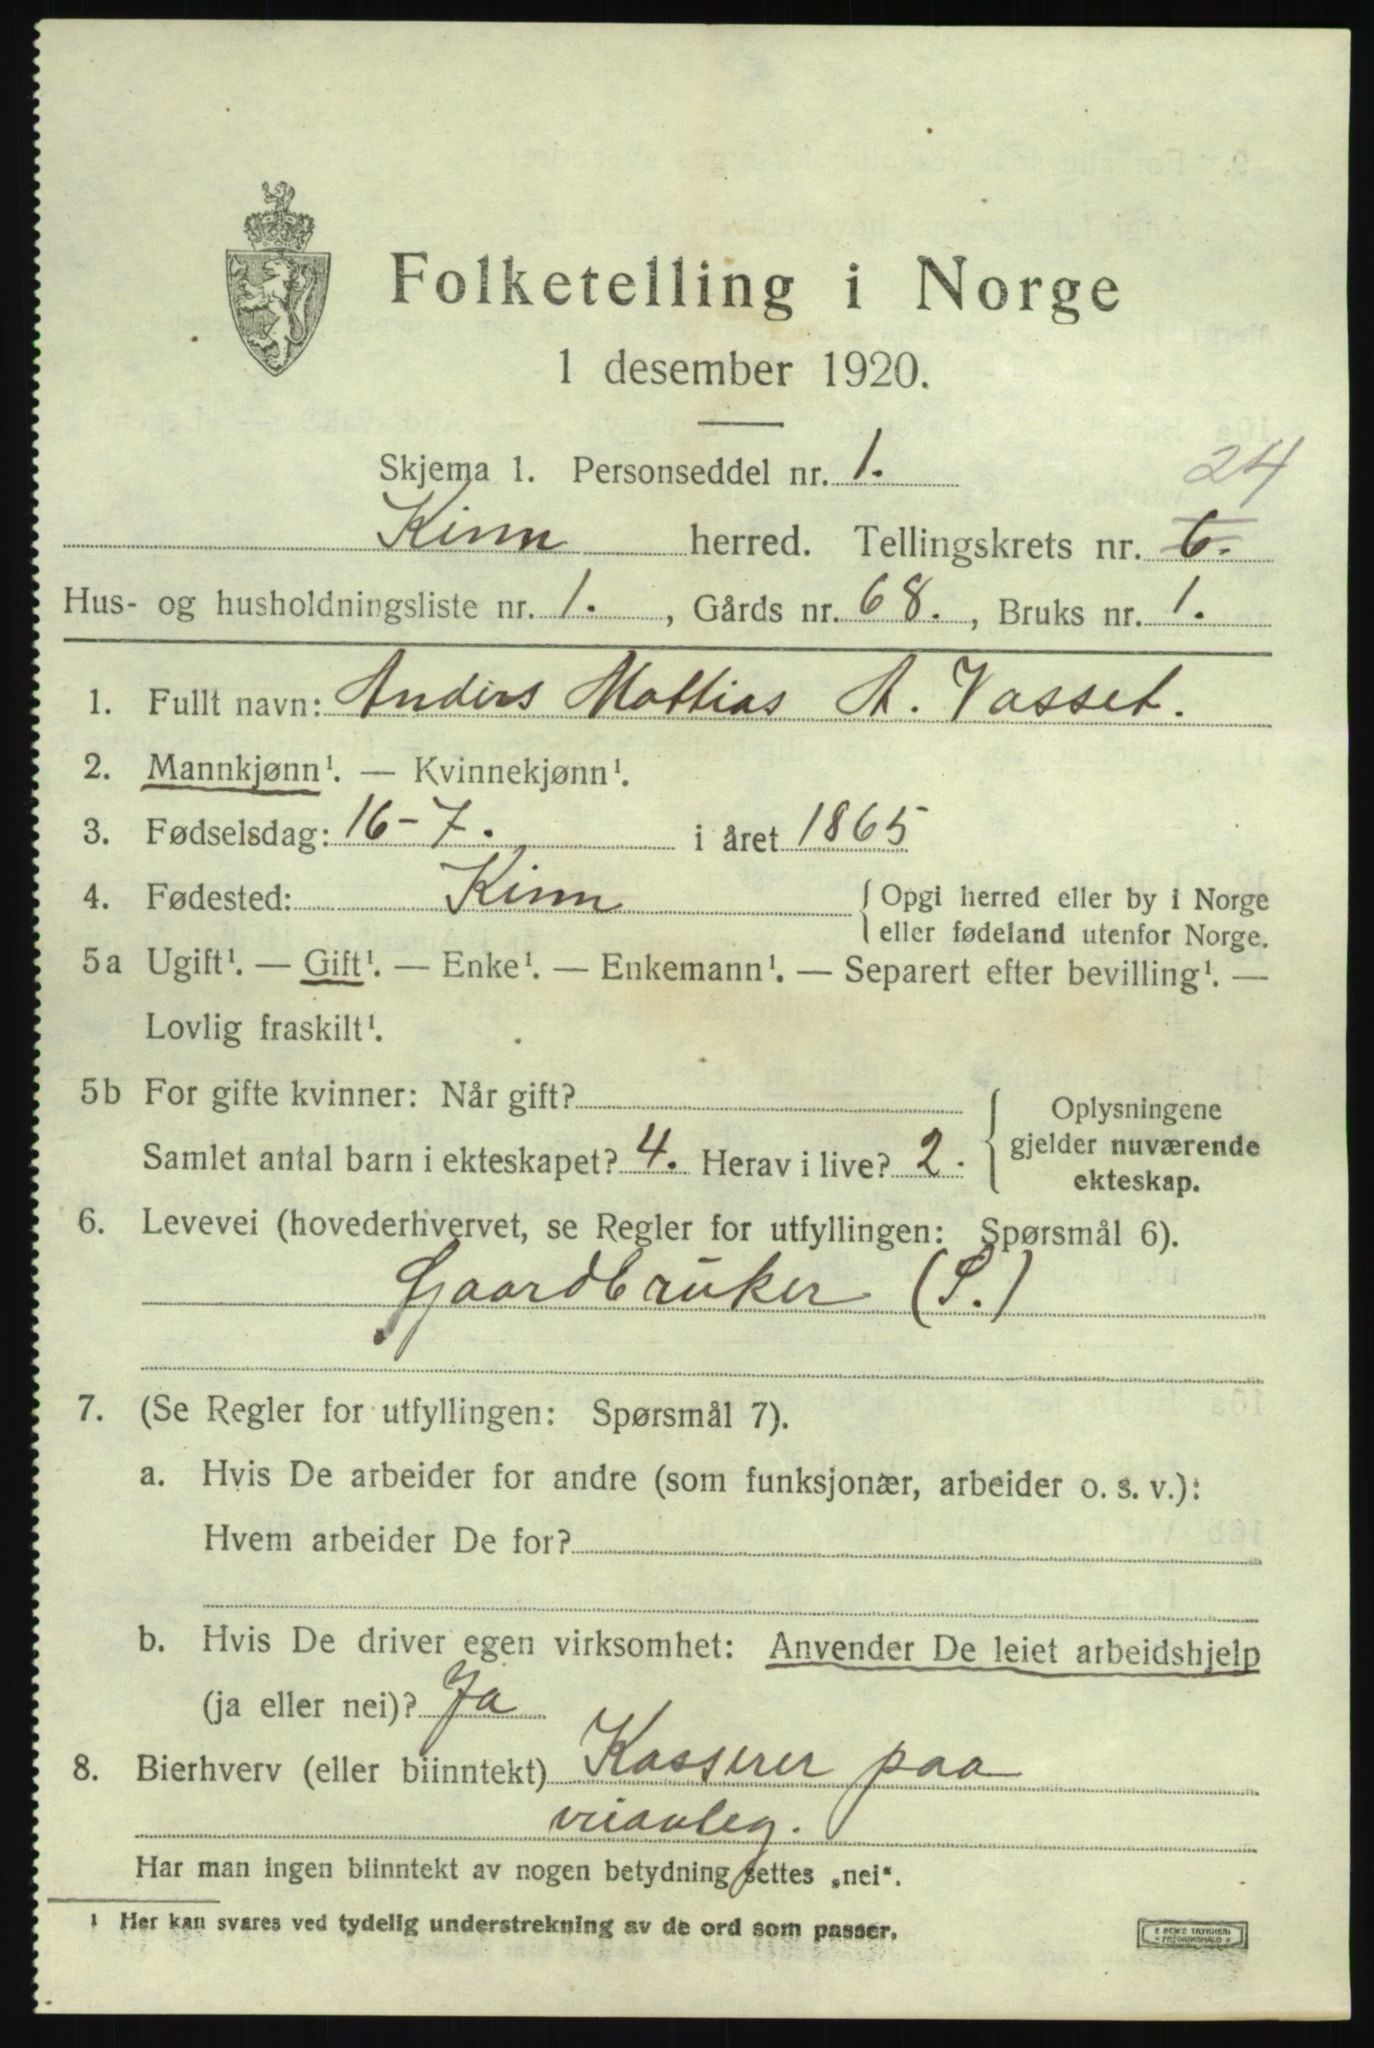 Folketelling i Norge
1 desember 1920.
Skjema 1. Personseddel nr. 1.
24
Kinn herred. Tellingskrets nr. 6.
Hus- og husholdningsliste nr. 1. , Gårds nr. 68. , Bruks nr. 1.
1. Fullt navn: Anders Mattias A. Vasset.
2. Mannkjønn¹. — Kvinnekjønn¹.
3. Fødselsdag: 16-7. i året 1865
4. Fødested: Kinn { Opgi herred eller by i Norge
eller fødeland utenfor Norge.
5a Ugift¹. — Gift¹. — Enke¹. — Enkemann¹. — Separert efter bevilling¹. —
Lovlig fraskilt¹.
5b For gifte kvinner: Når gift?
Samlet antal barn i ekteskapet? 4. Herav i live? 2.
{ Oplysningene
gjelder nuværende
ekteskap.
6. Levevei (hovederhvervet, se Regler for utfyllingen: Spørsmål 6).
Gaardbruker (S.)
7. (Se Regler for utfyllingen: Spørsmål 7).
a. Hvis De arbeider for andre (som funksjonær, arbeider o. s. v.):
Hvem arbeider De for?
b. Hvis De driver egen virksomhet: Anvender De leiet arbeidshjelp
(ja eller nei)? Ja
8. Bierhverv (eller biinntekt) Kasserer paa
Har man ingen biinntekt av nogen betydning settes „nei“.
¹ Her kan svares ved tydelig understrekning av de ord som passer.